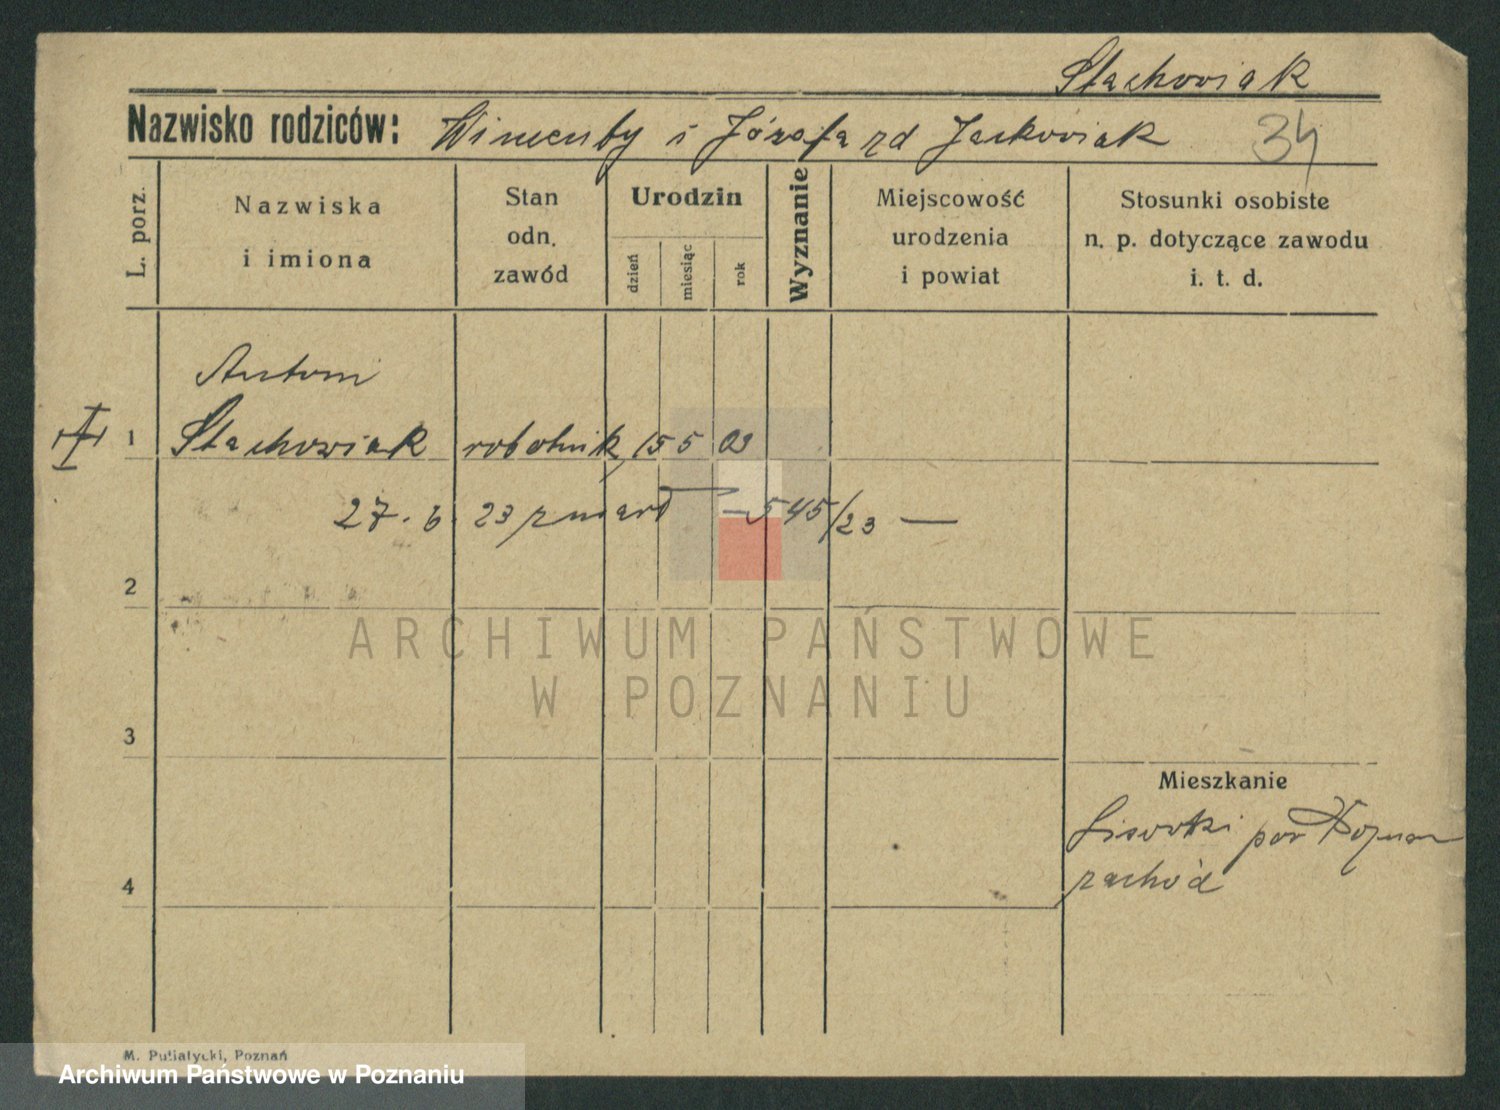 Stachowiak
Nazwisko rodziców: Wincenty i Józefa zd Jackowiak 34
L. porz.
Nazwiska
i imiona
Stan
odn.
zawód
Urodzin
dzień
miesiąc
rok
Wyznanie
Miejscowość
urodzenia
i powiat
Stosunki osobiste
n. p. dotyczące zawodu
i. t. d.
Antoni
1 Stachowiak robotnik 15 5 02
27. 6. 23 zmarł — 545/23 —
2
ARCHIWUM PAŃSTWOWE
W POZNANIU
3
Mieszkanie
pow Poznan
4 zachód
M. Putiatycki, Poznań
Archiwum Państwowe w Poznaniu